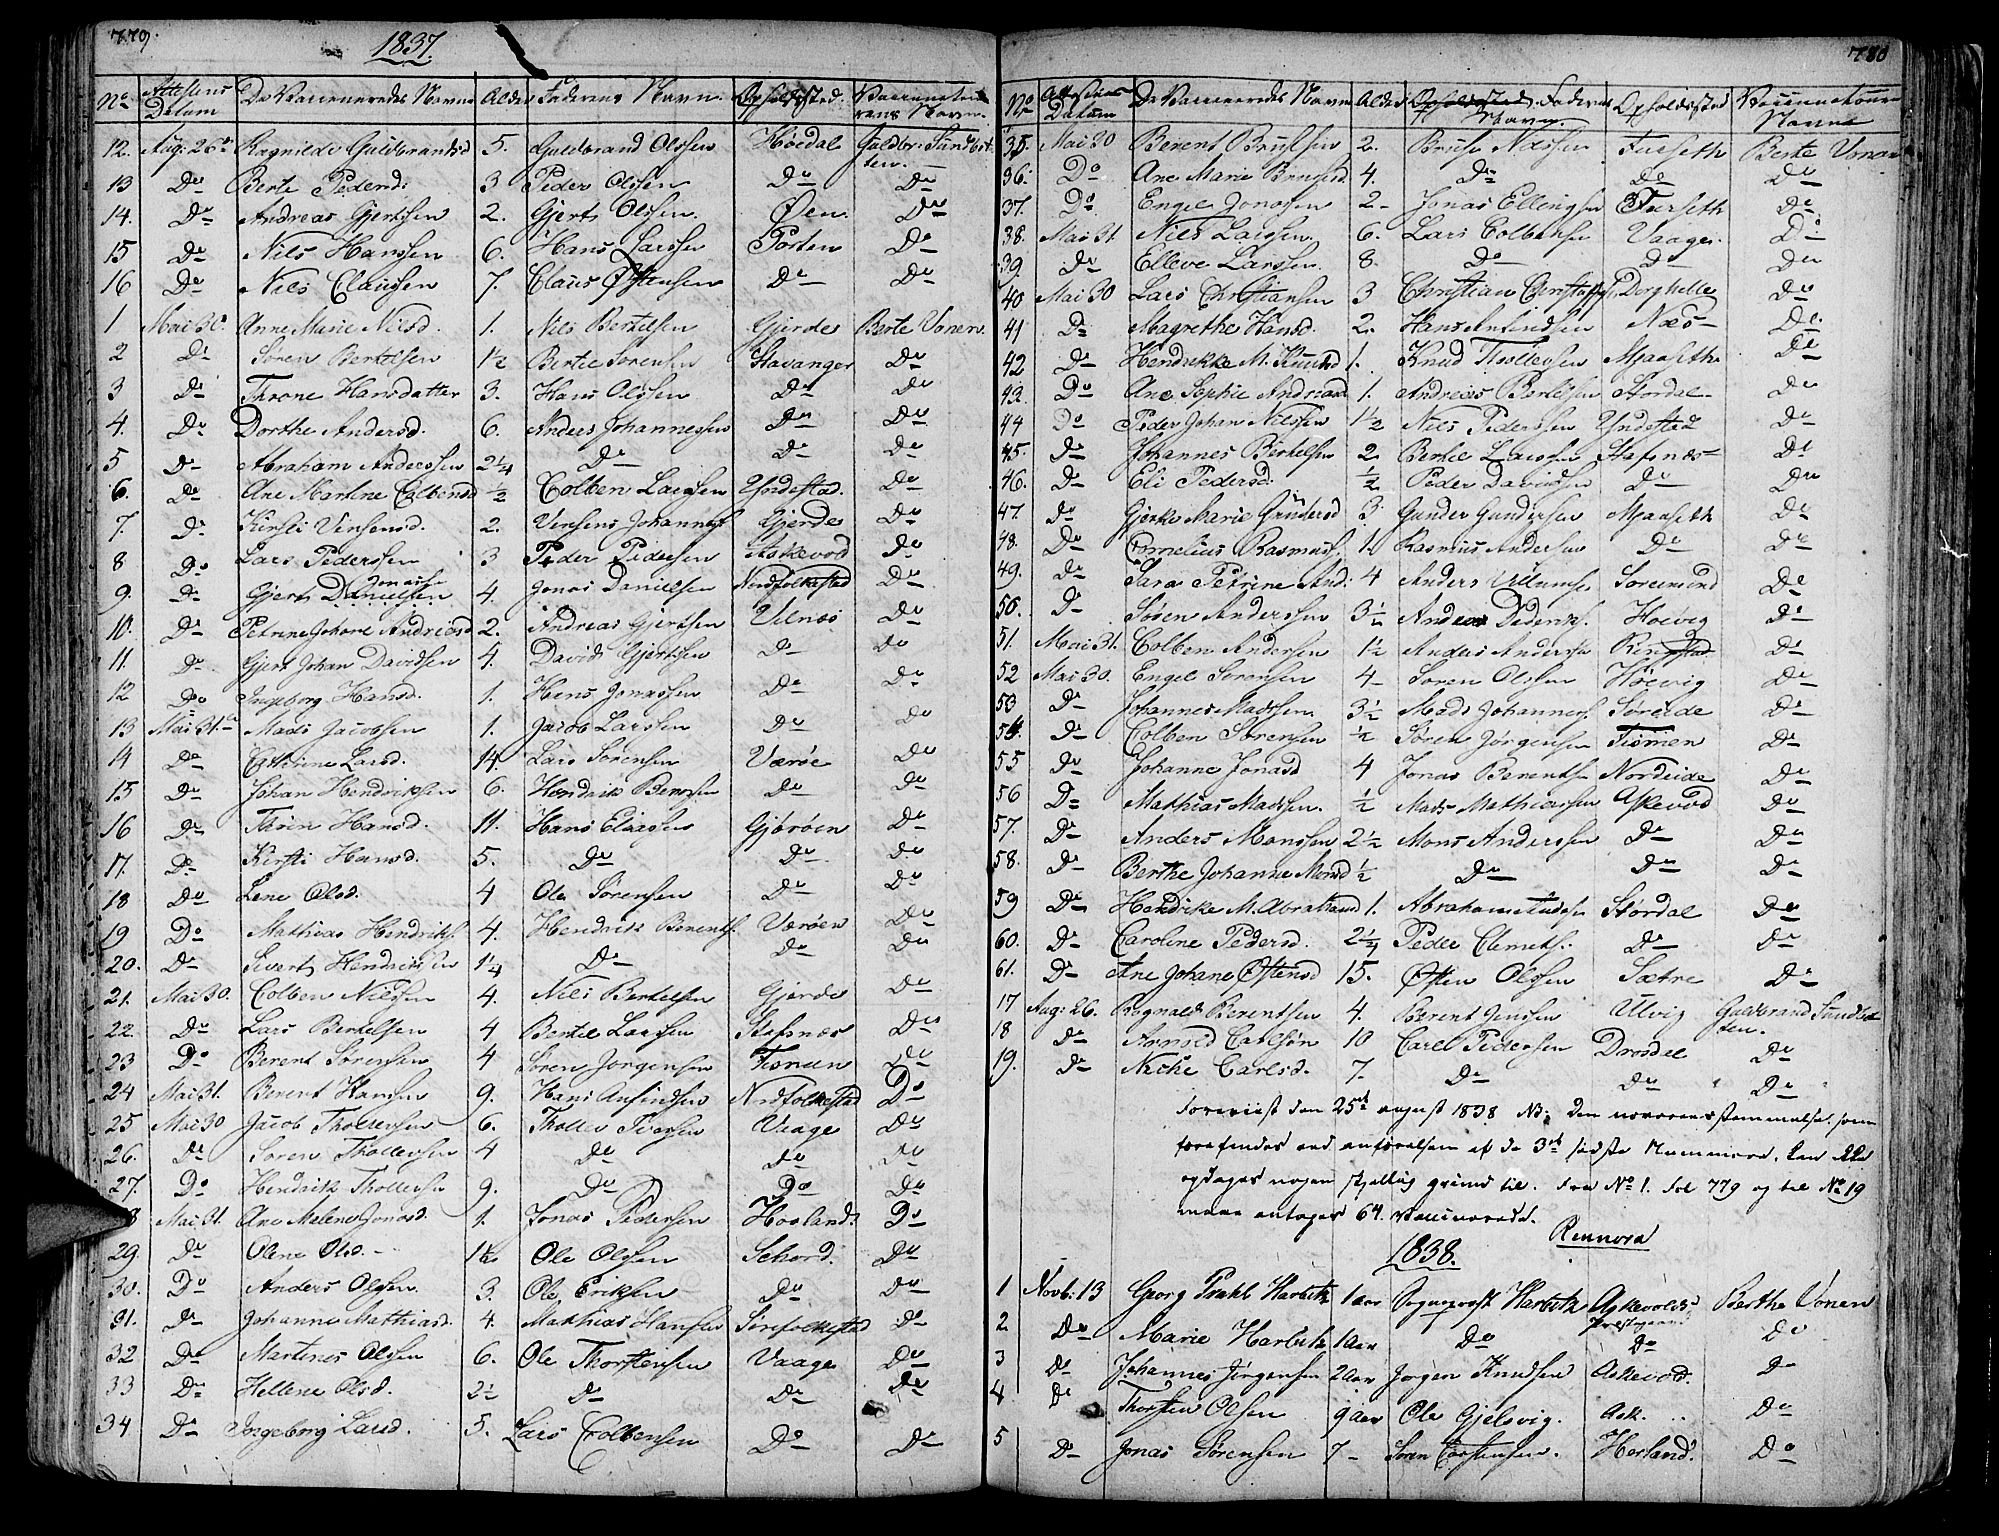 779.
1837.
No Attestens Datum De Vaccineredes Navne Alder Faderens Navn. Opholdssted. Vaccinateurens Navn.
12. Aug: 26de Ragnilde Guldbrandsd 5. Guldbrand Olssen Høedal Guldbr: Sundbotten.
13 Do Berte Pedersd: 3 Peder Olssen Do Do
14. Do Andreas Gjertssen 2. Gjert Olssen. Øen. Do
15 Do Nils Hanssen 6. Hans Larssen Porten Do
16 Do Nils Claussen 7. Claus Østensen Do Do
1 Mai 30. Anne Marie Nilsd. 1. Nils Bertelsen Gjerde Berte Vonen.
2 Do Søren Bertelsen 1½ Bertel Sørensen Stavanger Do
3 Do Throne Hansdatter 3. Hans Olssen Do Do
4. Do Dorthe Andersd. 6. Anders Johannessen Do Do
5 Do Abraham Anderssen 2¼ Do Do Do
6. Do Ane Martine Colbensd ½ Colben Larssen Yndestad. Do
7. Do Kirsti Vensensd. 2. Vensens Johannes Gjerde Do
8 Do Lars Pederssen 3 Peder Pedersen Askevold Do
9. Do Gjert Danielsen Jonass 4. Jonas Danielsen Nordfolkestad Do
10. Do Petrine Johane Andreasd 2. Andreas Gjertsen Vilnæs Do
11. Do Gjert Johan Davidsen 4. David Gjertsen Do Do
12 Do Ingeborg Hansd. 1. Hans Jonassen Do Do
13 Mai 31. Mads Jacobsen 1. Jacob Larssen Do Do
14 Do Cathrine Larsd. 14. Lars Sørensen Værøe Do
15 Do Johan Hendriksen 6. Hendrik Berntsen Do Do
16 Do Thrine Hansd. 11. Hans Eliassen Gjørøen Do
17. Do Kirsti Hansd. 5. Do Do Do
18 Do Lene Olsd. 4 Ole Sørensen Do Do
19 Do Mathias Hendriks. 4. Hendrik Berents. Værøen Do
20. Do Sivert Hendriksen 1¼ Do Do Do
21. Mai 30. Colben Nilssen 4. Nils Bertelsen Gjerde Do
22. Do Lars Bertelsen 4 Bertel Larssen Stafsnæs Do
23 Do Berent Sørensen 4 Søren Jørgensen Tismen Do
24 Mai 31. Berent Hansen 9. Hans Anfindsen Nordfolkestad Do
25 Mai 30 Jacob Thollefsen 6. Tholle Iversen Vaage Do
26. Do Søren Thollevsen 4 Do Do Do
27. Do Hendrik Thollevsen 9. Do Do Do
28 Mai 31. Ane Melene Jonasd. 1. Jonas Pedersen Hosland Do
29. Do Olene Olsd. Ole Olssen Schord. Do
30. Do Anders Olssen 3. Ole Eriksen Do Do
31. Do Johanne Mathiasd. 4. Mathias Hansen Sørefolkestad Do
32 Do Martines Olssen 6. Ole Thorstensen Vaage Do
33 Do Hellene Olsd. 2½ Do Do Do
34 Do Ingeborg Larsd. 5. Lars Colbensen Do Do
780
No Attestens Datum De Vaccineredes Navne Alder Opholdssted. Faderens Navn. Opholdssted Vaccinateurens Navne
35. Mai 30 Berent Brusssen 2. Bruse Nilssen Furseth Berte Vonen
36. Do Ane Marie Brusesd 4. Do Do Do
37. Do Engel Jonassen 2 Jonas Ellingsen Furseth Do
38. Mai 31. Nils Larssen. 6. Lars Colbensen Vaage. Do
39. Do Elleve Larssen. 8. Do Do Do
40 Mai 30 Lars Christiansen 3 Christian Christoffers. Berghelle Do
41 Do Magrethe Hansd. 2. Hans Anfindsen Næs Do
42 Do Hendrikke M. Knudsd 1. Knud Thollevsen Maaseth Do
43. Do Ane Sophie Andreasd 1. Andreas Bertelsen Stordal Do
44 Do Peder Johan Nilssen 1½ Nils Pederssen Yndestad Do
45. Do Johannes Bertelsen 2 Bertel Larssen Stafsnæs Do
46. Do Eli Pedersd. ½ Peder Davidsen Do Do
47. Do Gjerte Marie Gundersd 3. Gunder Gundersen Maaseth Do
48. Do Cornelius Rasmuss. 1. Rasmus Andersen Do Do
49. Do Sara Petrine And: 4 Anders Villumsen Soreimind Do
50. Do Søren Anderssen 3½ Anders Dideriks. Høevig Do
51. Mai 31. Colben Andersen 1½ Anders Andersen Ringstad Do
52 Mai 30. Engel Sørensen 4 Søren Olssen Høevig Do
53 Do Johannes Madssen. 3½ Mads Johannes. Søreide Do
54. Do Colben Sørensen ½ Søren Jørgensen Tismen Do
55 Do Johanne Jonasd 4 Jonas Berentsen Nordeide Do
56 Do Mathias Madssen. ½ Mads Mathiassen Askevold Do
57. Do Anders Monssen 2½ Mons Anderssen Do Do
58. Do Berthe Johanne Monsd ½ Do Do Do
59 Do Hendrike M. Abrahamsd 1. Abraham Andersen Stordal Do
60. Do Caroline Pedersd. 2¼ Peder Clemets. Do Do
61. Do Ane Johane Østensd 15. Østen Olssen Sætre Do
17 Aug: 26. Ragnald Berentsen 4. Berent Jenssen Ulvig Guldbrand Sundbotten.
18 Do Arnold Carlsøn 10 Carl Pedersen Drosdal Do
19. Do Niche Carlsd. 7. Do Do Do
Foreviist den 25de august 1838 NB: Den uoverensstemmelse som
forefindes ved anførelsen af de 3de sidste Nummere, kan ikke
opdages nogen skjellig grund til. Fra No 1. fol 779 og til No 19
maae antages 64. vaccinerede.
Rennord
1838.
1 Novb: 13 Georg Prahl Harbitz 1 aar Sognepræst Harbitz Askevolds Præstegaard Berthe Vonen
2 Do Marie Harbitz 1 aar Do Do Do
3 Do Johannes Jørgensen 2 aar Jørgen Knudsen Askevold. Do
4 Do Thorsten Olsen 9 aar Ole Gjelsvig. Ask. Do
5 Do Jonas Sørensen 7 Søren Torstensen. Herland. Do